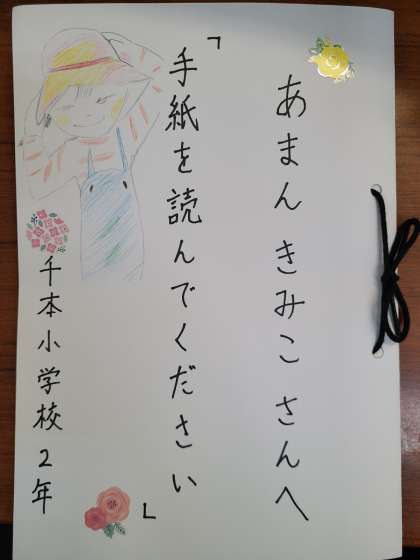 あまんきみこさんへ
「手紙を読んでください」
千本小学校2年